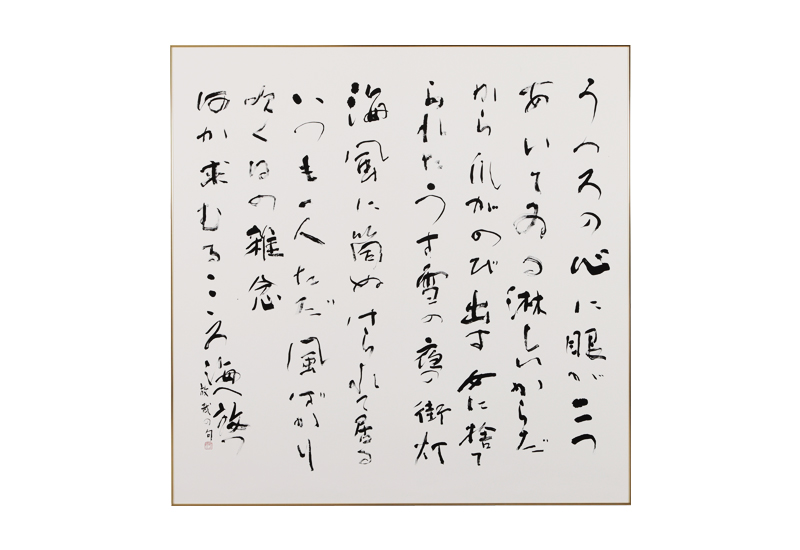 うつろの心に眼が二つ
あいてゐる淋しいからだ
から爪がのび出す女に捨て
られたうす雪の夜の街灯
海風に筒ぬけられて居る
いつも一人ただ風ばかり
吹く日の雑念
何か求むるこころ海へ放つ
放哉の句